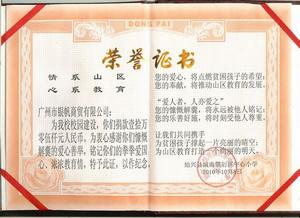 DONG PAI
荣誉证书
情系山区
心系教育
广州市银帆商贸有限公司:
为我校校园建设,你们捐款壹拾万
零伍仟元人民币,为衷心感谢你们慷慨
解囊的爱心善举,铭记你们的拳拳爱国
心、浓浓教育情,特予此证,以作纪念。
您的爱心,将点燃贫困孩子的希望;
您的奉献,将推动山区教育的发展。
“爱人者,人亦爱之”
您的慷慨解囊,将永远被他人铭记;
您的乐善好施,将时刻受他人尊敬。
让我们共同携手
为贫困孩子撑起一片亮丽的晴空;
为山区教育打造一个亮丽的明天。
始兴县城南镇 中心小学
2010年10月